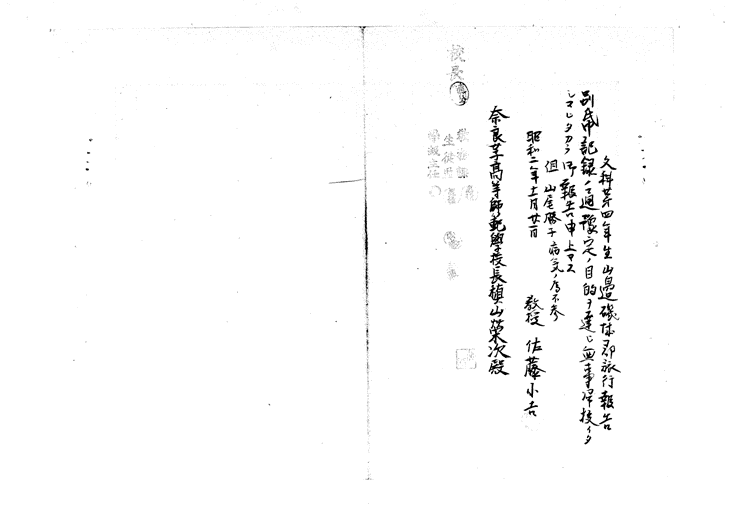 文科第四年生山邊磯城郡旅行報告
別紙記録ノ通豫定ノ目的ヲ達シ無事帰校イタ
シマシタカラ御報告申上マス
但山尾勝子病気ノ為不参
昭和二年十一月廿一日
教授 佐藤小吉
奈良女子高等師範學校長槙山榮次殿
校長
生徒